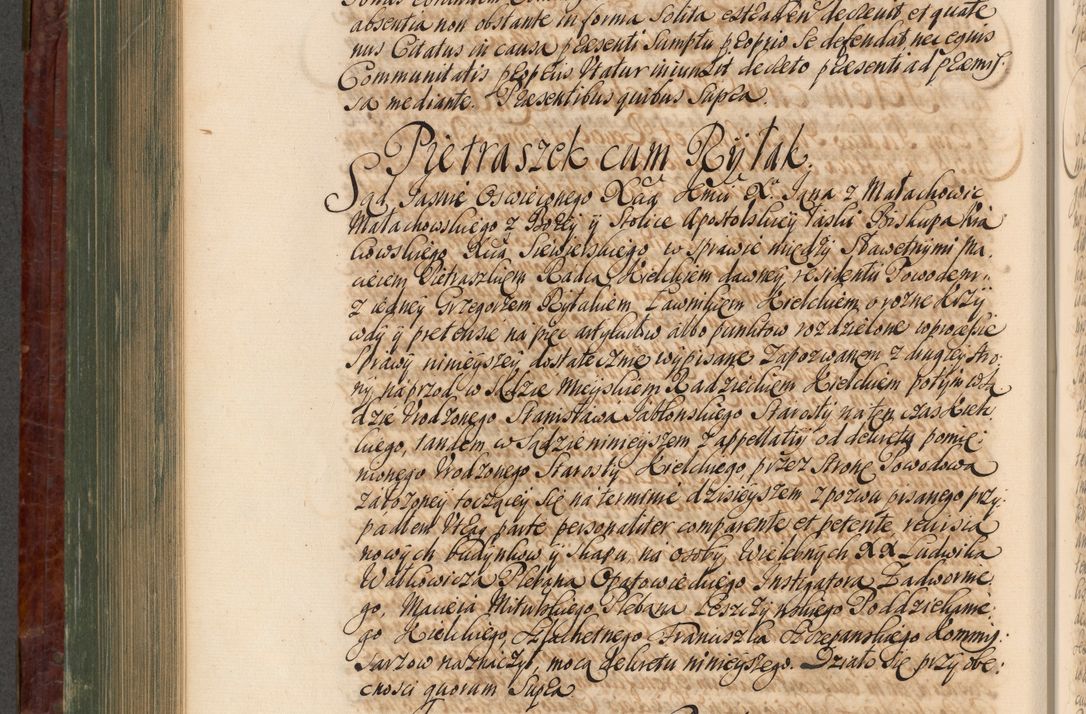 absentia non obstante in forma solita extraden decrevit et quate
nus Citatus in causa praesenti sumptu proprio se defendat, nec equis
Communitatis propriis utatur iniunxit decreto praesenti ad praemis
sa mediante. Praesentibus quibus supra.
Pietraszek cum Rytak.
Sąd Jaśnie Oświeconego Xcia Jmci Xa Jana z Małachowic
Małachowskiego z Bożey y Stolice Apostolskiey łaski Biskupa Kra
kowskiego Xcia Siewierskiego, w sprawie między Sławetnymi Ma,
cieiem Pietraszkiem Radcą Kielckiem dawney residentii Powodem
z iedney Grzegorzem Rytakiem Ławnikiem Kielckiem, o rożne krzy
wdy y pretensie na pięc artykułow albo punktow rozdzielone w processie
Prawy nimieyszey dostatecznie wypisane Zapozwanem z drugiey stro,
ny naprzod w Sądzie Mieyskiem Radzieckiem Kielckiem potym w są
dzie Urodzonego Stanisława Jabłonskiego Starosty na ten czas Kiel
ckiego, tandem w Sądzie nimieyszem z appellatiy od dekretu pomie
nionego Urodzonego Starosty Kielckiego, przez Stronę Powodową
założoney toczącey się na terminie dzisieyszem z pozwu pisanego przy
padłem Utraq parte personaliter comparente et petente, revisią
nowych budynkow y skarg, na osoby Wielebnych XX Ludwika
Watkowicza Plebana Opatowieckiego Instigatora Zadworne
go, Macieja Mitulskiego Plebana Leszczynskiego Poddziekanie
go Kielckiego, Szlachetnego Franciszka Szczepanskiego Kommis
sarzow naznaczył, mocą dekretu nimieyszego. Działo się przy obe
cnosci quorum supra